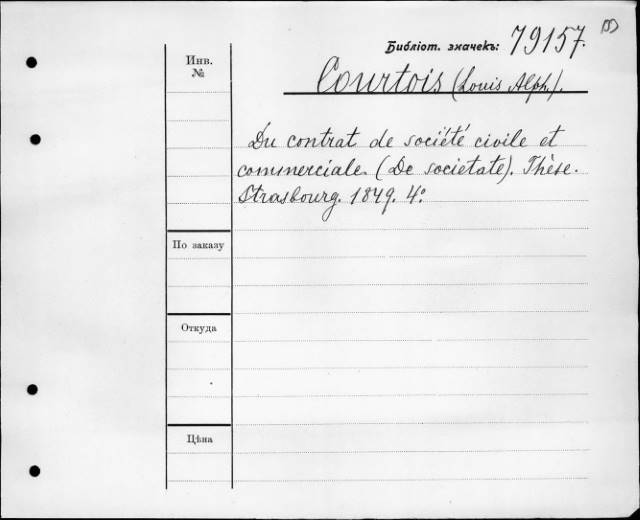 Библіот. значекъ: 79157.
Инв.
№
Courtois (Louis Alph.).
Du contrat de société civile et
commerciale. (De societate). Thèse.
Strasbourg. 1849. 4º
По заказу
Откуда
Цѣна